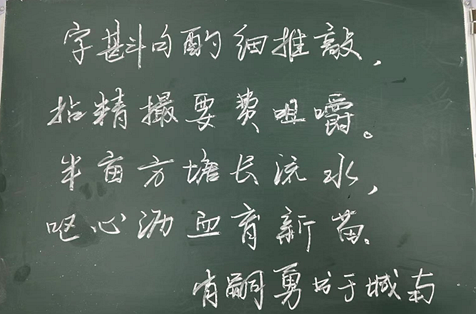 字斟句酌细推敲，
拈精撮要费咀嚼。
半亩方塘长流水，
呕心沥血育新苗。
肖嗣勇书于城南